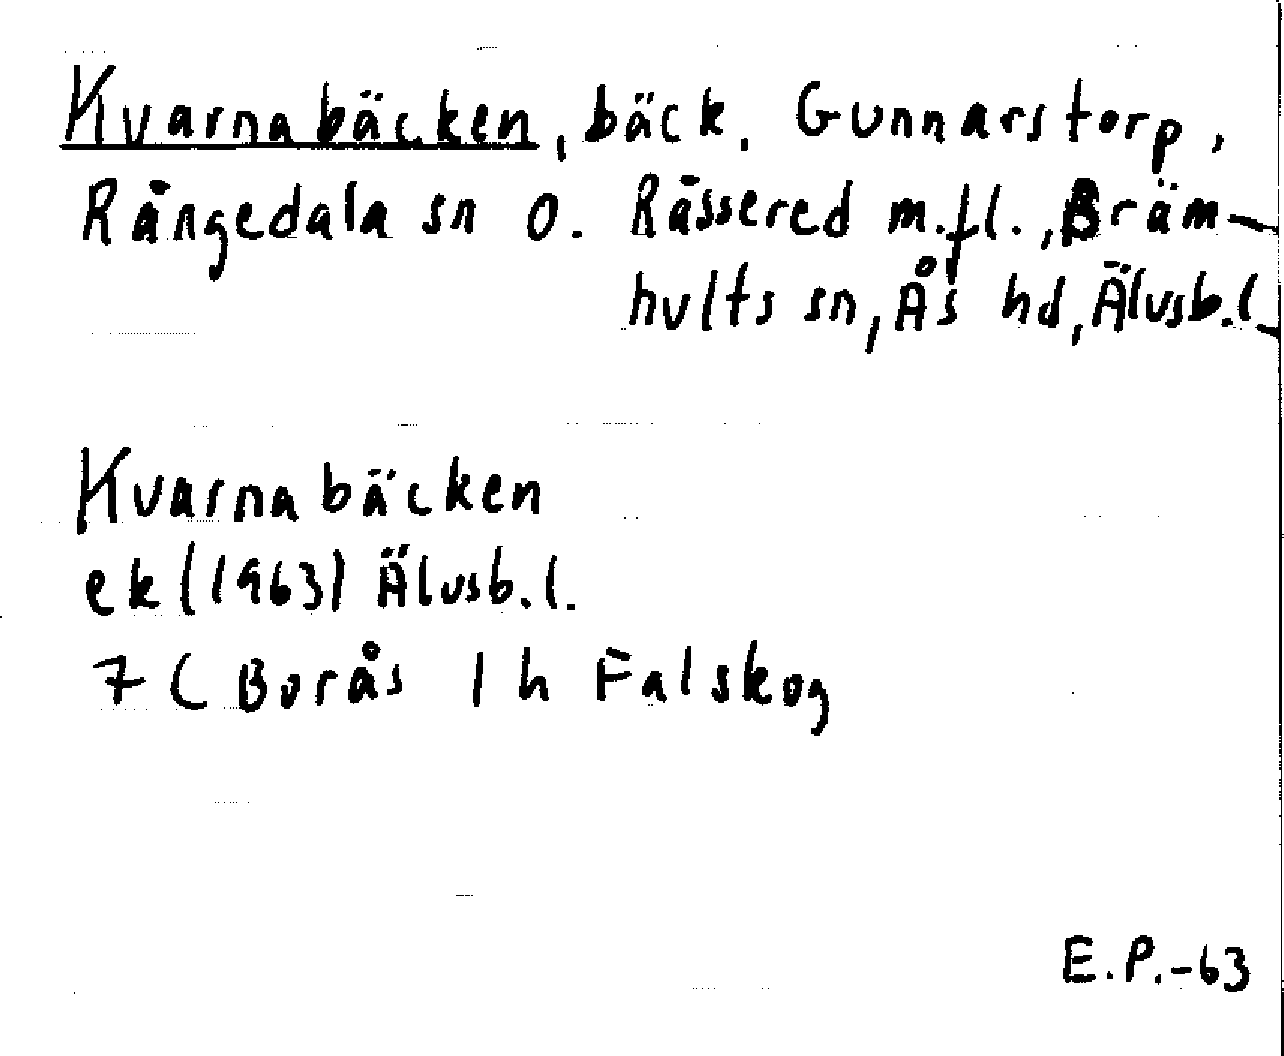 Kvarnabäcken, bäck. Gunnarstorp,
Rångedala sn o. Råssered m.fl., Bräm-
hults sn, Ås hd, Älvsb.l.
Kvarnabäcken
ek (1963) Älvsb.l.
7 C Borås 1 h Falskog
E.P.-63